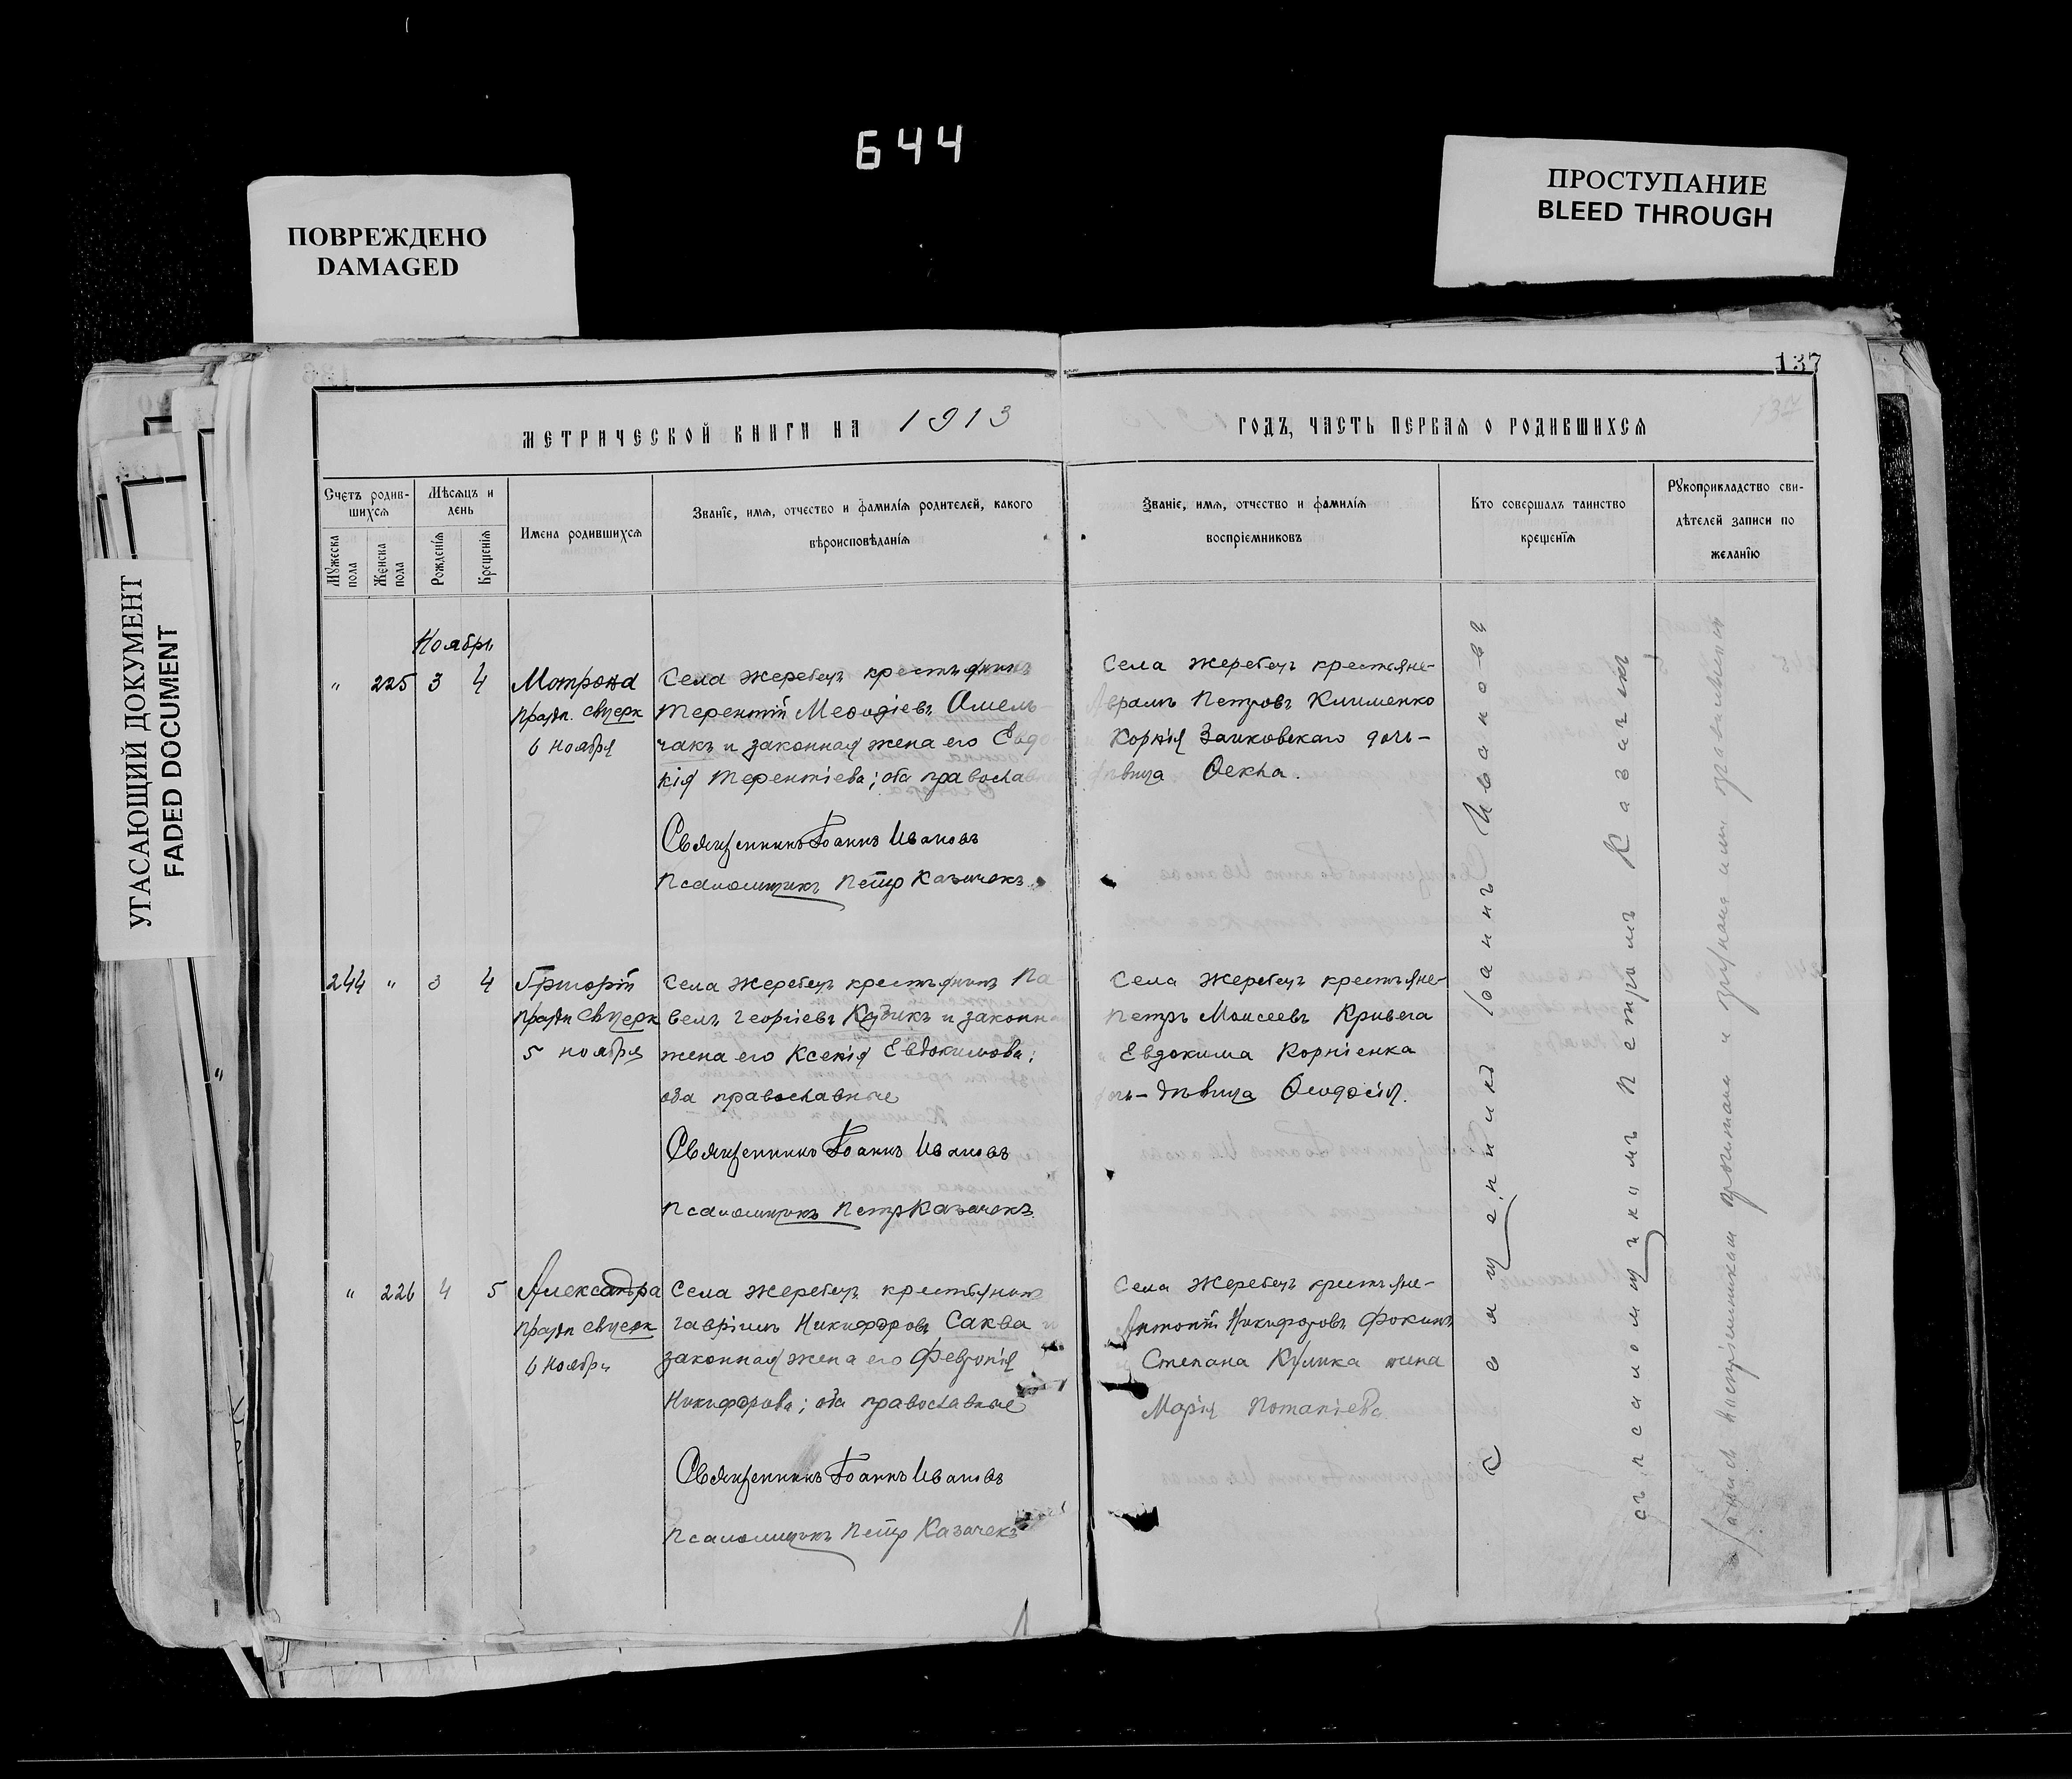 644
ПОВРЕЖДЕНО
DAMAGED
ПРОСТУПАНИЕ
BLEED THROUGH
УГАСАЮЩИЙ ДОКУМЕНТ
FADED DOCUMENT
137
МЕТРИЧЕСКОЙ КНИГИ НА 1913
ГОДЪ, ЧАСТЬ ПЕРВАЯ О РОДИВШИХСЯ
Счетъ родив-
шихся
Мужеска пола
Женска пола
Мѣсяцъ и
день
Рожденія
Крещенія
Имена родившихся
Званіе, имя, отчество и фамилія родителей, какого
вѣроисповѣданія
Званіе, имя, отчество и фамилія
воспріемниковъ
Кто совершалъ таинство
крещенія
Рукоприкладство сви-
дѣтелей записи по
желанію
Ноябрь
" 225 3 4
Мотрона
праздн. св. церк
6 ноября
Села Жеребецъ крестьянинъ
Терентій Меѳодіевъ Омель-
чакъ и законная жена его Евдо-
кія Терентіева; оба православ
Священникъ Іоаннъ Ивановъ
Псаломщикъ Петръ Казачекъ
Села Жеребецъ крестьяне-
Аврамъ Петровъ Клименко
Корнія Заиковскаго дочь-
дѣвица Ѳекла.
244 " 3 4
Григорій
праздн св. церк
5 ноября
Села Жеребецъ крестьянинъ Па-
велъ Георгіевъ Кубикъ и законн
жена его Ксенія Евдокимова;
оба православные
Священникъ Іоаннъ Ивановъ
Псаломщикъ Петръ Казачекъ
Села Жеребецъ крестьяне-
Петръ Моисеевъ Кривега
Евдокима Корніенка
дочь-дѣвица Ѳеодосія.
" 226 4 5
Александра
праздн св. церк
6 Ноября
Села Жеребецъ крестьянинъ
Гавріилъ Никифоровъ Саква и
законная жена его Февронія
Никифорова; оба православные
Священникъ Іоаннъ Ивановъ
Псаломщикъ Петръ Казачекъ
Села Жеребецъ крестьяне-
Антоній Никифоровъ Фокинъ
Степана Кулика жена
Марія Потапіева
Священникъ Іоаннъ Ивановъ
съ псаломщикомъ Петромъ Казачекъ